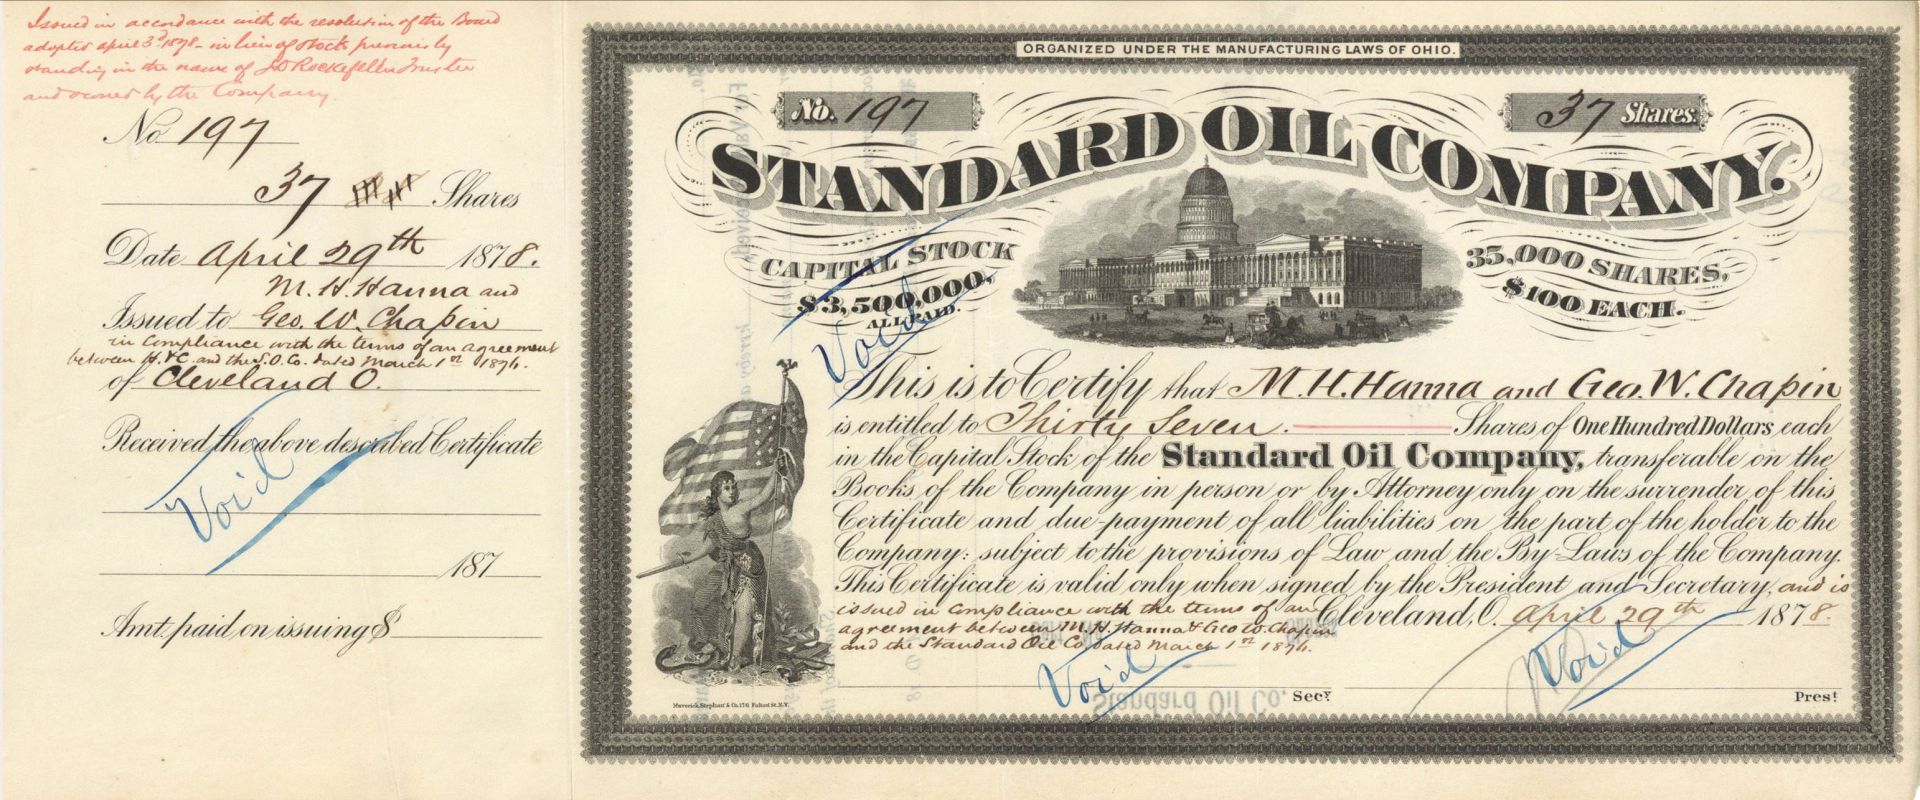 Issued in accordance with the resolution of the Board
adopted April 3d 1878 - in lieu of stock previously
standing in the name of J D Rockefeller Trustee
and owned by the Company.
No 197
37 Shares
Date April 29th 1878.
M. H. Hanna and
Issued to Geo. W. Chapin
in compliance with the terms of an agreement
between H. & C. and the S. O. Co. dated March 1st 1876.
of Cleveland O.
Received the above described Certificate
Void
187
Amt. paid on issuing $
ORGANIZED UNDER THE MANUFACTURING LAWS OF OHIO.
No. 197
37 Shares.
STANDARD OIL COMPANY.
CAPITAL STOCK
$3,500,000,
ALL PAID.
35,000 SHARES,
$100 EACH.
Void
This is to Certify that M. H. Hanna and Geo. W. Chapin
is entitled to Thirty Seven. Shares of One Hundred Dollars each
in the Capital Stock of the Standard Oil Company, transferable on the
Books of the Company in person or by Attorney only on the surrender of this
Certificate and due payment of all liabilities on the part of the holder to the
Company: subject to the provisions of Law and the By-Laws of the Company.
This Certificate is valid only when signed by the President and Secretary, and is
issued in compliance with the terms of an Cleveland, O. April 29th 1878.
agreement between M. H. Hanna & Geo W. Chapin
and the Standard Oil Co. dated March 1st 1876.
Void
Void
Standard Oil Co.
Secy
Prest
Maverick, Stephan & Co. 176 Fulton St. N.Y.